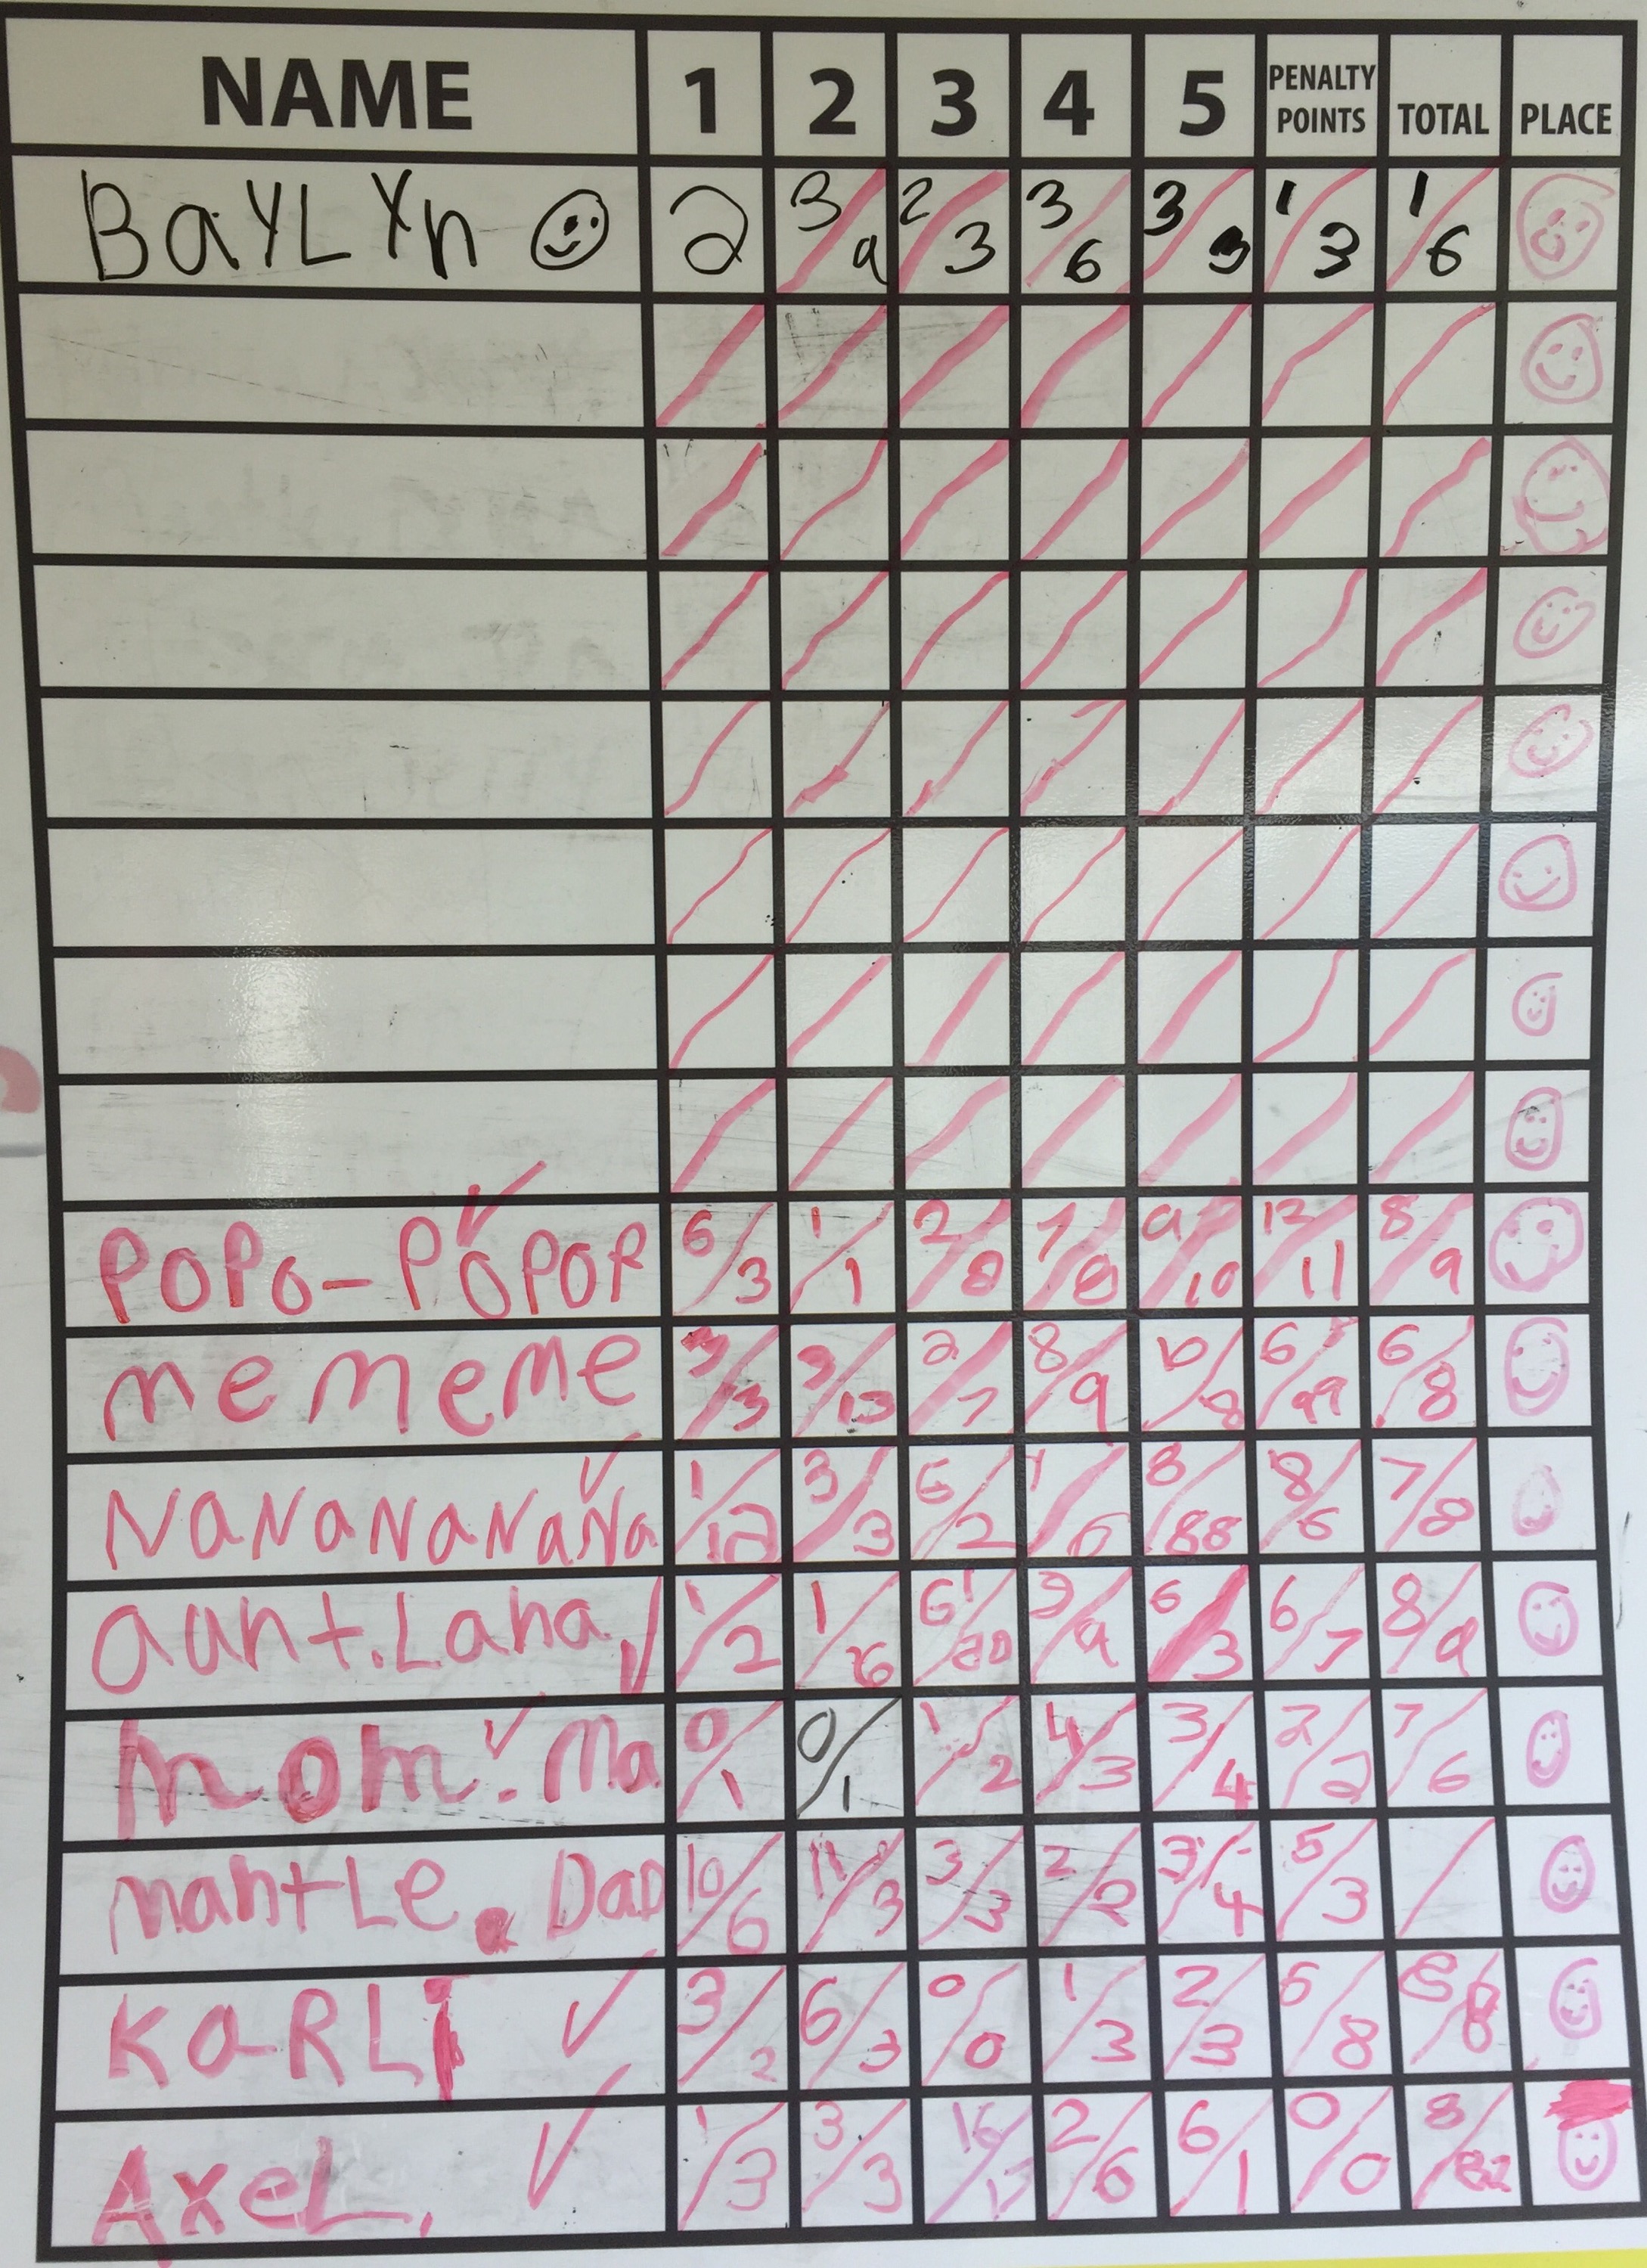 NAME 1 2 3 4 5 PENALTY POINTS TOTAL PLACE
BaYLYn 2 3/9 2/3 3/6 3/3 1/3 1/6
POPO-POPOP 6/3 1/1 2/8 7/8 9/10 12/11 8/9
MeMeMe 3/3 3/13 2/7 8/9 10/8 6/99 6/8
NaNaNaNaNa 1/12 3/3 6/2 1/6 8/88 8/6 7/8
aunt.Lana 1/2 1/16 61/20 3/9 6/3 6/7 8/9
mom. Ma 0/1 0/1 1/2 4/3 3/4 2/2 7/6
mantLe. Dad 10/6 11/3 3/3 2/2 3/4 5/3 /
KaRLi 3/2 6/3 0/0 1/3 2/3 6/8
AxeL. 1/3 3/3 16/17 2/6 6/1 0/0 8/82